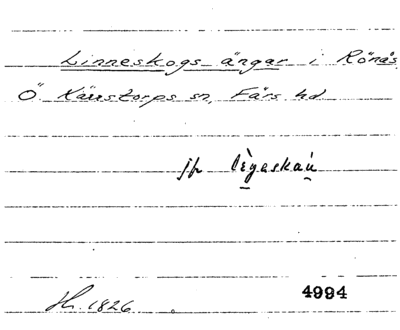 Linneskogs ängar i Rönås,
Ö Kärrstorps sn, Färs hd
jfr
Hz. 1826
4994